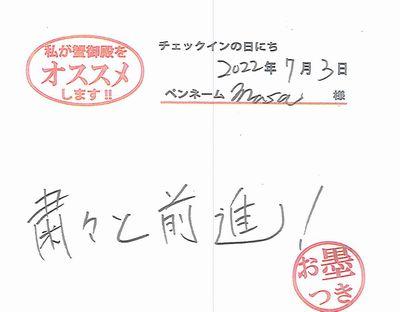 私が蟹御殿を
オススメ
します!!
チェックインの日にち
2022年7月3日
ペンネーム masa 様
粛々と前進！
お墨
つき